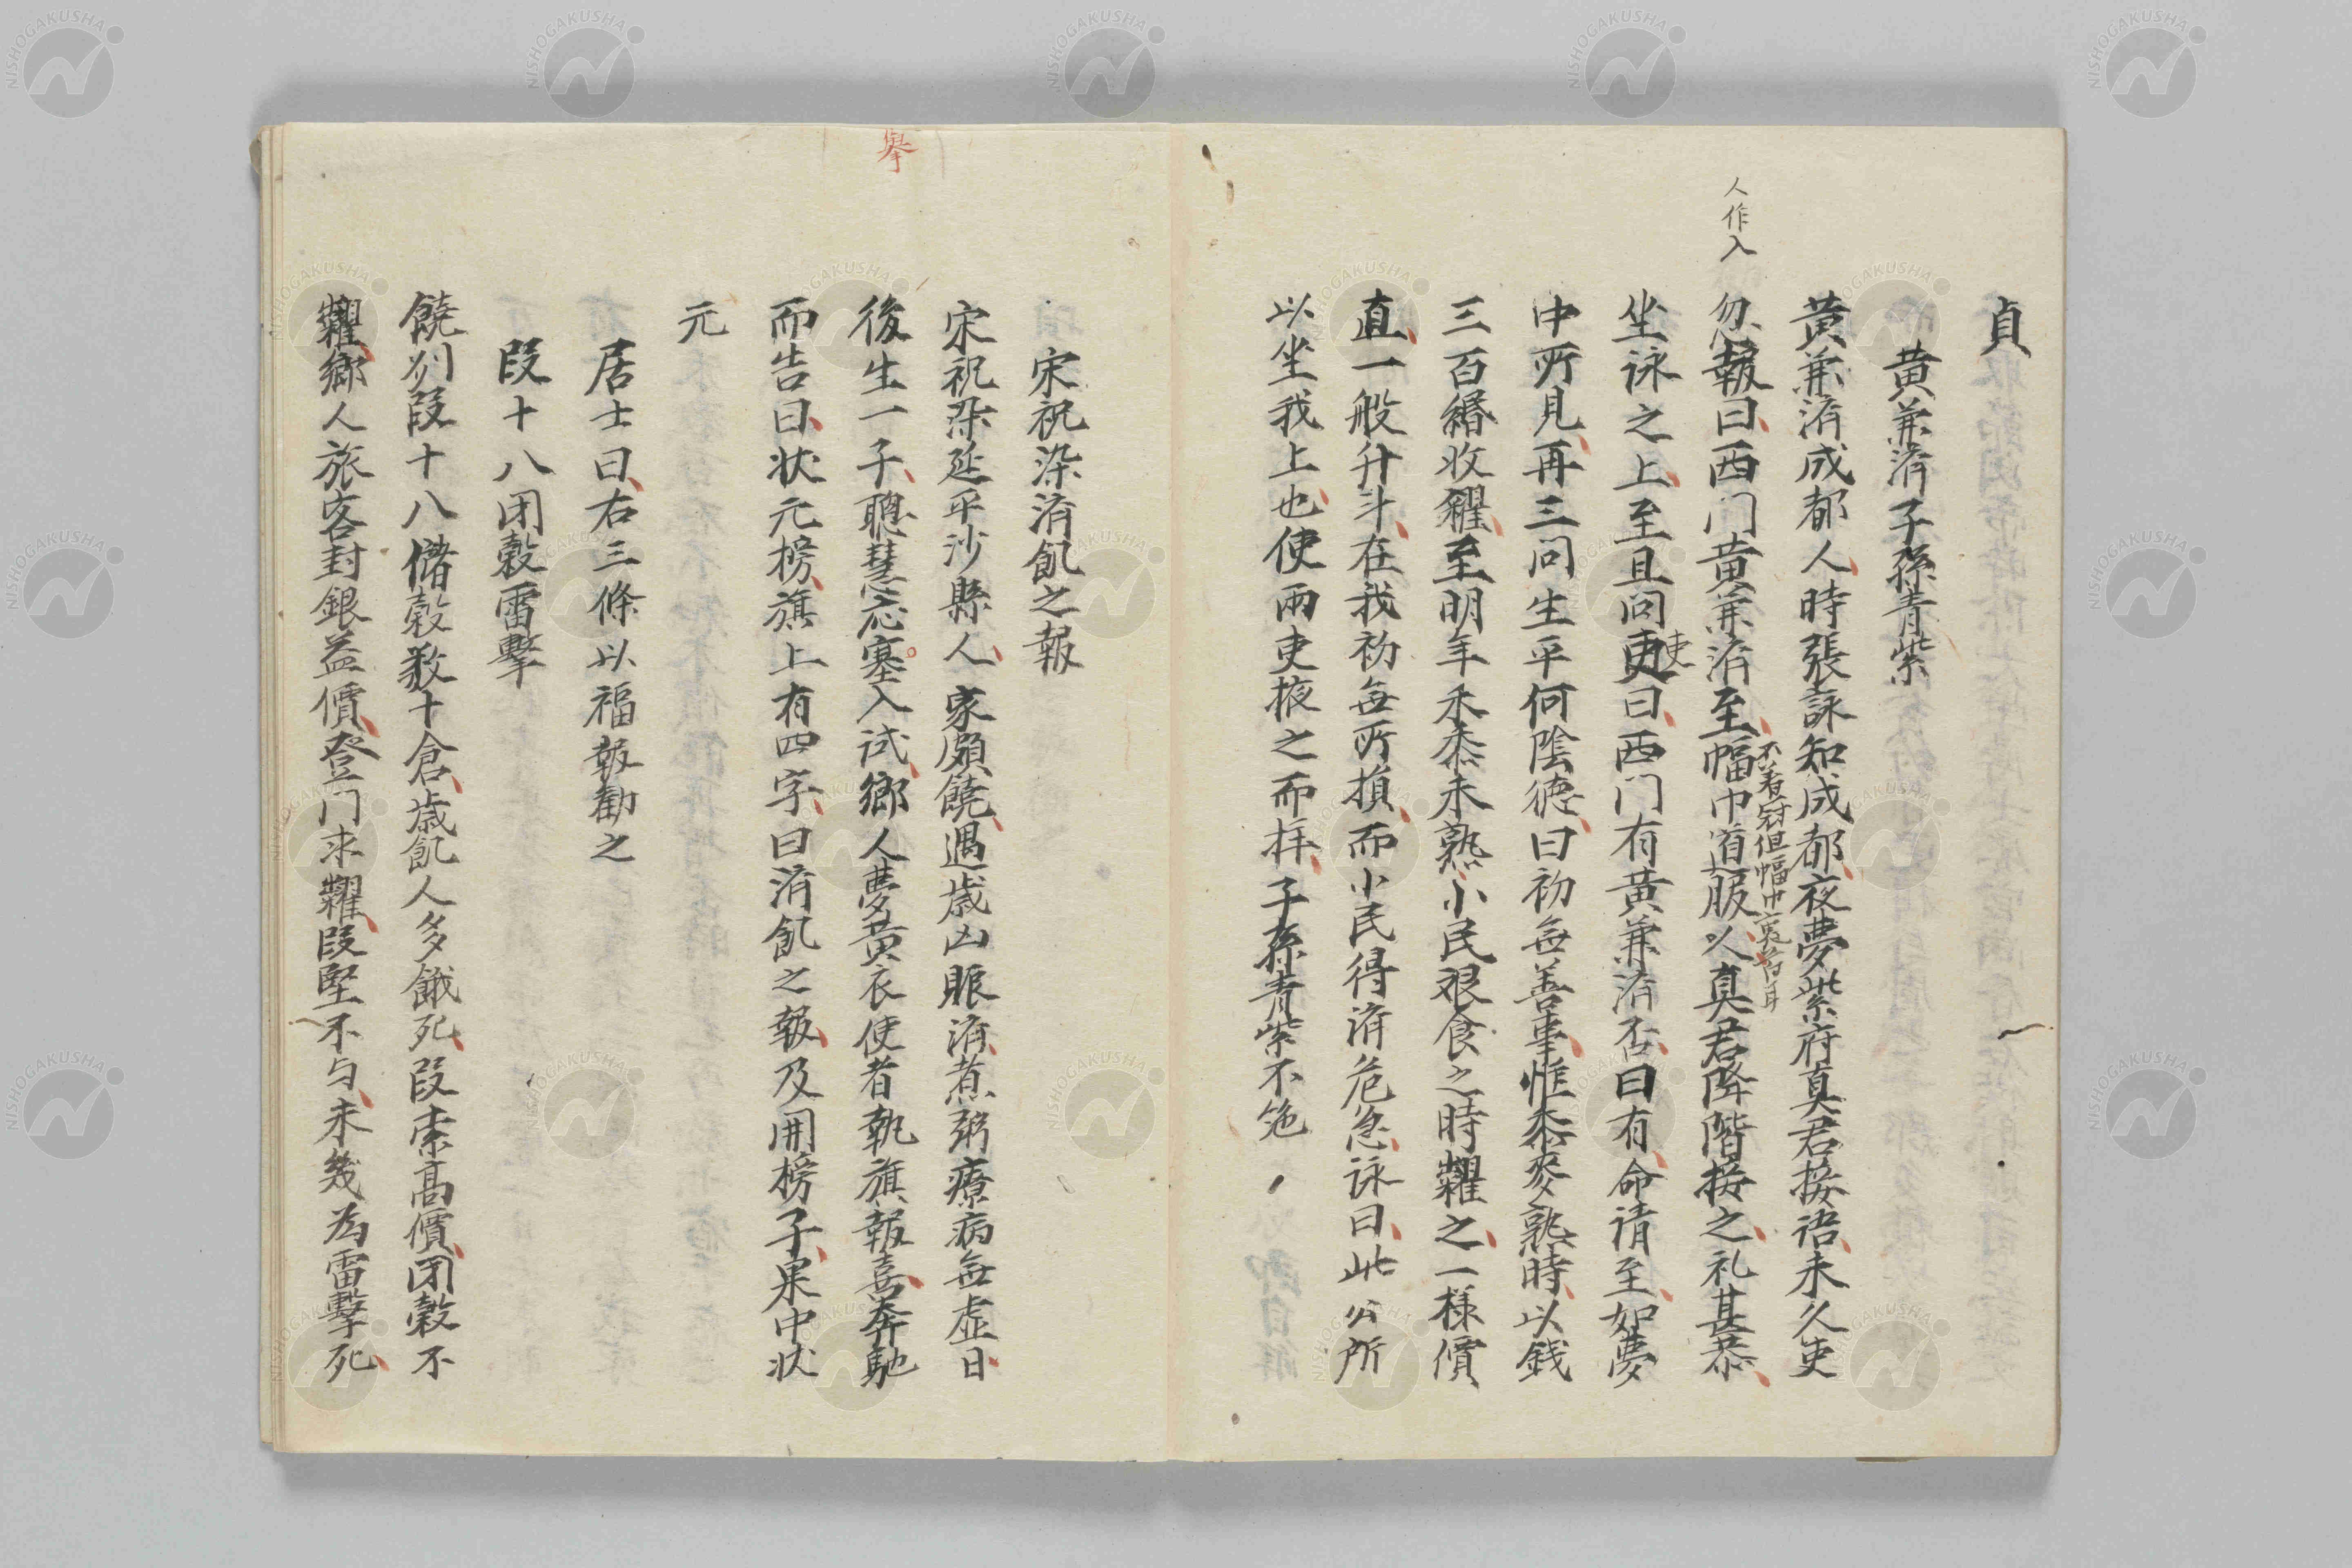 貞
黄兼済子孫青紫
黄兼済成都人時張詠知成都夜夢紫府真君接语未久吏
人作入
忽報曰西门黄兼済至幅巾道服以真君降階接之礼甚恭
不着冠但幅巾裹首耳
坐詠之上至旦问吏曰西门有黄兼済否曰有命请至如夢
吏
中所見再三问生平何陰徳曰初無善事惟黍麥熟時以銭
三百緡收糴至明年禾黍未熟小民艱食之時糶之一様價
直一般升斗在我初無所損而小民得済危急詠曰此公所
以坐我上也使兩吏掖之而拝子孫青紫不绝
宋祝染済飢之報
宋祝染延平沙縣人家頗饒遇歳凶賑済煮粥療病無虚日
舉
後生一子聰慧应塞入试鄉人夢黄衣使者執旗報喜奔馳
而告曰状元榜旗上有四字曰済飢之報及開榜子果中状
元
居士曰右三條以福報勸之
段十八闭穀雷擊
饒州段十八儲穀数十倉歳飢人多餓死段索高價闭穀不
糶鄉人旅客封銀益價登门求糶段堅不与未幾為雷擊死
NISHOGAKUSHA